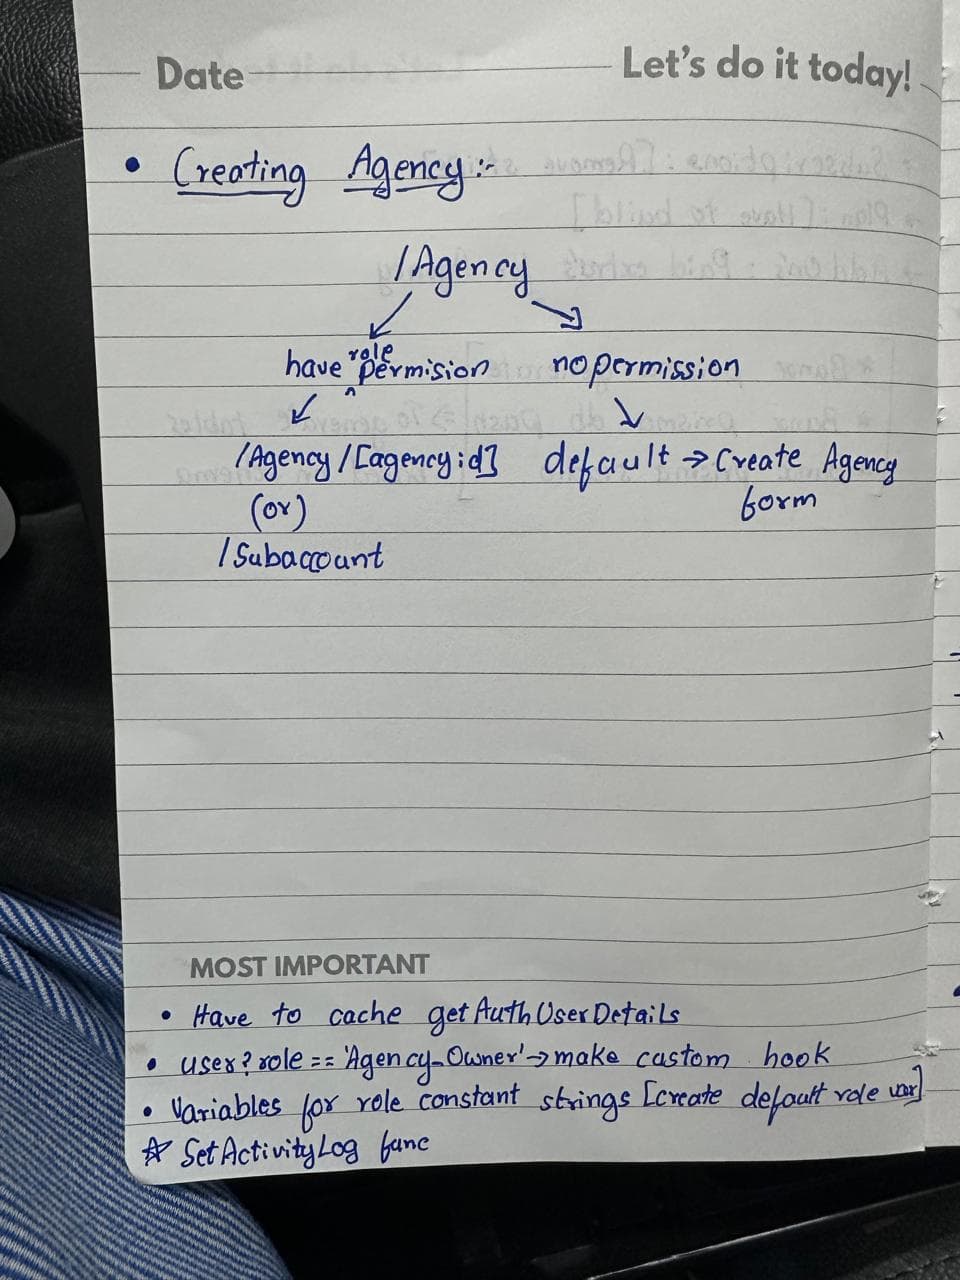 Date
Let's do it today!
• Creating Agency :-
/Agency
have role permision no permission
/Agency/[agencyid] default → Create Agency
(or) form
/Subaccount
MOST IMPORTANT
• Have to cache getAuthUserDetails
• user?role == 'Agency_Owner' → make custom hook
• Variables for role constant strings [create default role var]
☆ SetActivityLog func